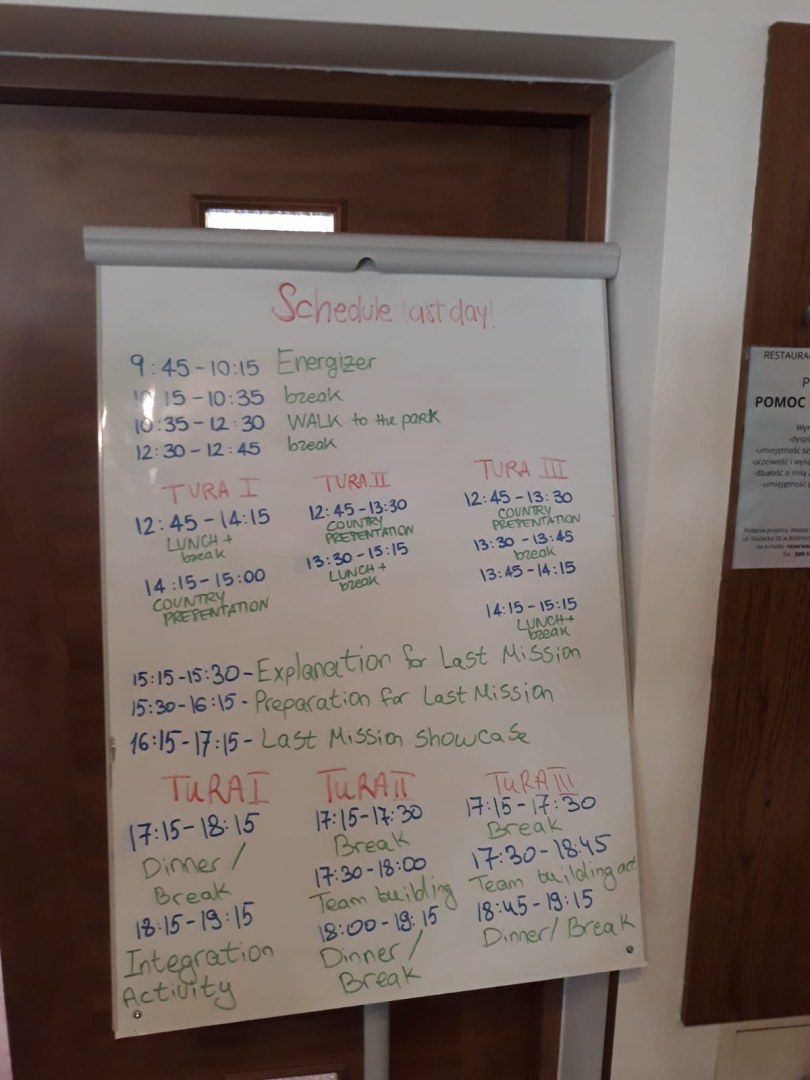 Schedule last day!
9:45-10:15 Energizer
10:15-10:35 break
10:35-12:30 WALK to the park
12:30-12:45 break
TURA I
12:45-14:15
LUNCH +
break
14:15-15:00
COUNTRY
PRESENTATION
TURA II
12:45-13:30
COUNTRY
PRESENTATION
13:30-15:15
LUNCH +
break
TURA III
12:45-13:30
COUNTRY
PRESENTATION
13:30-13:45
break
13:45-14:15
14:15-15:15
LUNCH+
break
15:15-15:30-Explanation for Last Mission
15:30-16:15-Preparation for Last Mission
16:15-17:15-Last Mission showcase
TURA I
17:15-18:15
Dinner/
Break
18:15-19:15
Integration
Activity
TURA II
17:15-17:30
Break
17:30-18:00
Team building
18:00-19:15
Dinner/
Break
TURA III
17:15-17:30
Break
17:30-18:45
Team building act
18:45-19:15
Dinner/Break
RESTAURAC
P
POMOC
Wy
-dyspo
-umiejętność sz
-uczciwość i wyso
-dbałość o miłą
-umiejętność p